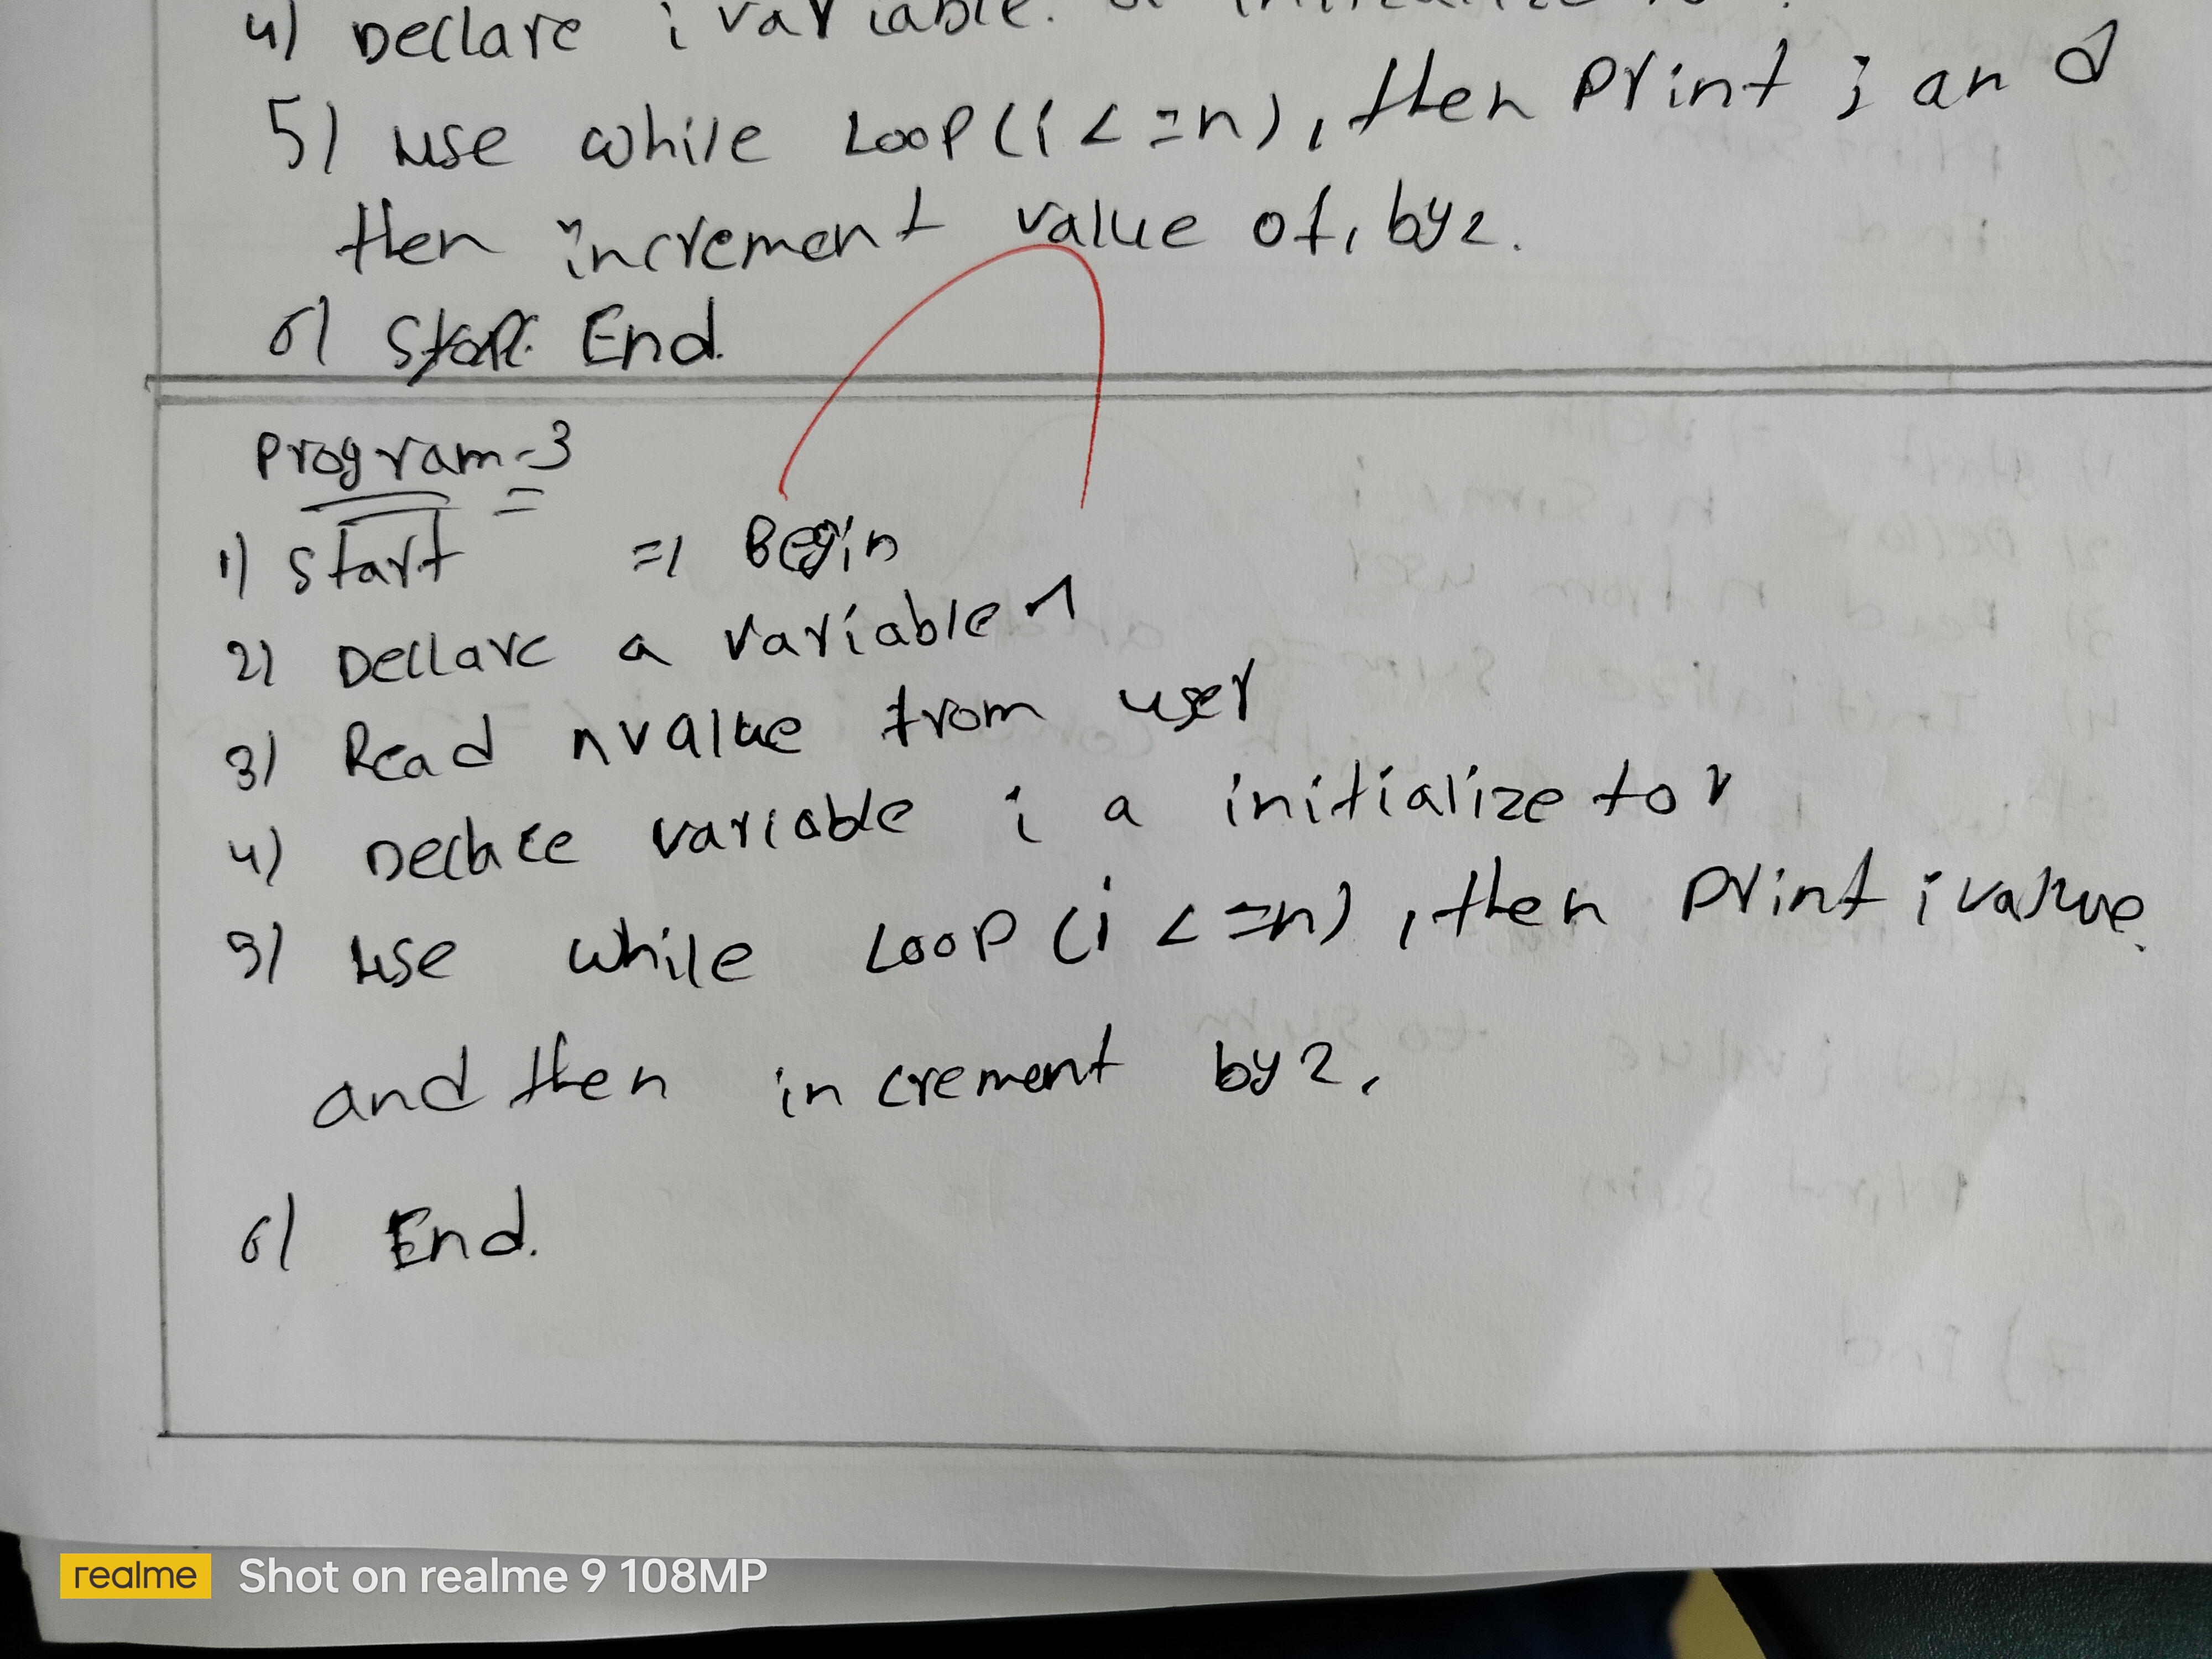 4) Declare i variable.
5) use while Loop(i <=n), then print i and
then increment value of i by 2.
6) End.
Program-3
1) Start => Begin
2) Declare a variable n
3) Read n value from user
4) Declare variable i a initialize to
5) use while Loop (i <=n), then print i value.
and then increment by 2.
6) End.
realme Shot on realme 9 108MP